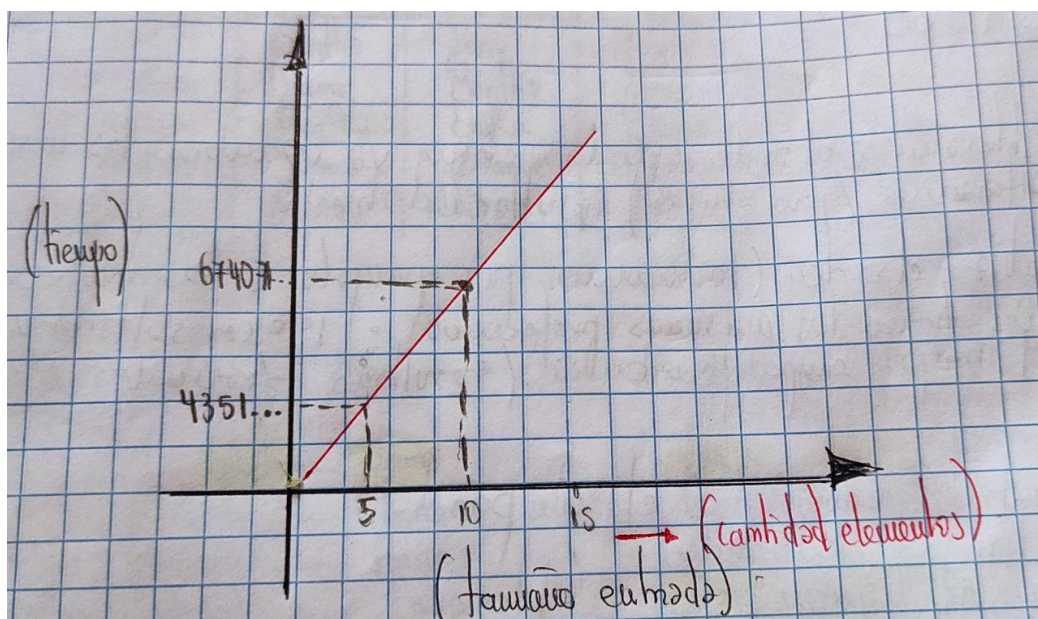 (tiempo)
67407...
4351...
5
10
15
(cantidad elementos)
(tamaño entrada)